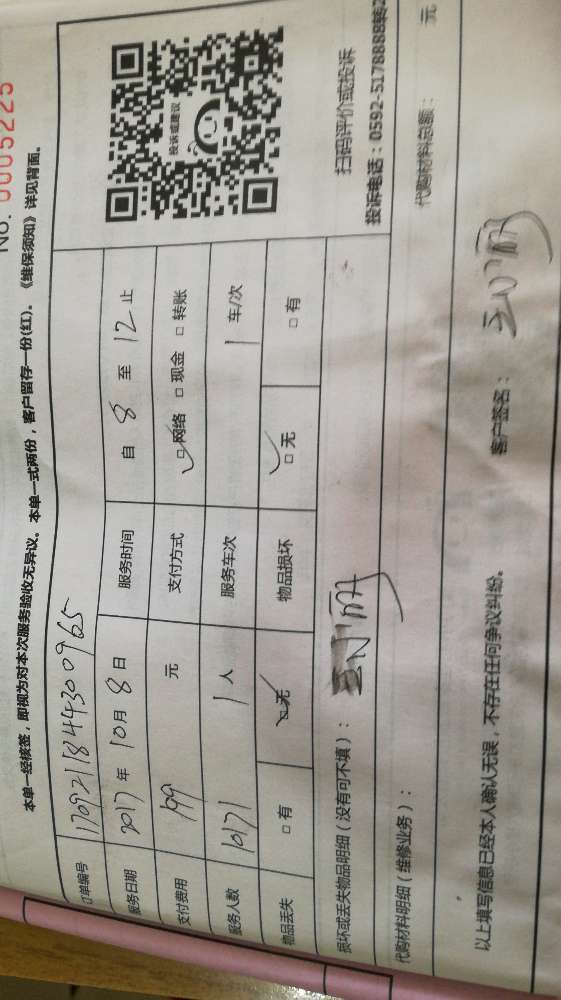 No. 0005225
本单一经核签，即视为对本次服务验收无异议。本单一式两份，客户留存一份(红)。《维保须知》详见背面。
订单编号
服务日期 2017 年 10 月 8 日 服务时间 自 8 至 12 止
支付费用 199 元 支付方式 □网络 □现金 □转账
服务人数 1 人 服务车次 1 车/次
物品丢失 □有 □无 物品损坏 □无 □有
投诉或建议
扫码评价或投诉
投诉电话：0592-5178888转2
损坏或丢失物品明细（没有可不填）：
代购材料明细（维修业务）： 代购材料总额： 元
以上填写信息已经本人确认无误，不存在任何争议纠纷。 客户签名：